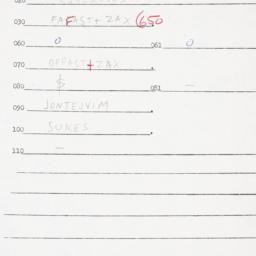 030 FAFAST+ZAX (650
060 0 061 0
070 OFFAST+ZAX
$ 081 —
090 JONTEJVIM
100 SUKES
110 —